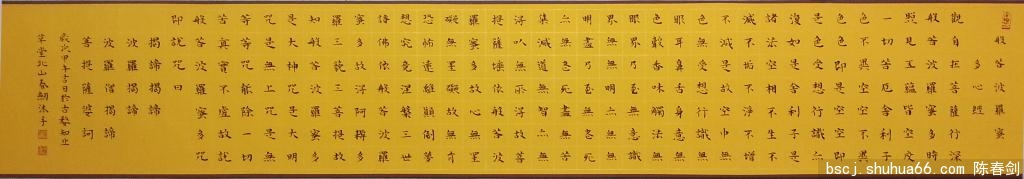 般若波羅蜜
多心經
觀自在菩薩行深
般若波羅蜜多時
照見五蘊皆空度
一切苦厄舍利子
色不異空空不異
色色即是空空即
是色受想行識亦
復如是舍利子是
諸法空相不生不
滅不垢不淨不增
不減是故空中無
色無受想行識無
眼耳鼻舌身意無
色聲香味觸法無
眼界乃至無意識
界無無明亦無無
明盡乃至無老死
亦無老死盡無苦
集滅道無智亦無
得以無所得故菩
提薩埵依般若波
羅蜜多故心無罣
礙無罣礙故無有
恐怖遠離顛倒夢
想究竟涅槃三世
諸佛依般若波羅
蜜多故得阿耨多
羅三藐三菩提故
知般若波羅蜜多
是大神咒是大明
咒是無上咒是無
等等咒能除一切
苦真實不虛故說
般若波羅蜜多咒
即說咒曰
揭諦揭諦
波羅揭諦
波羅僧揭諦
菩提薩婆訶
歲次甲午吉日於古黎知止
草堂北山春劍沐手
bscj.shuhua66.com 陈春剑